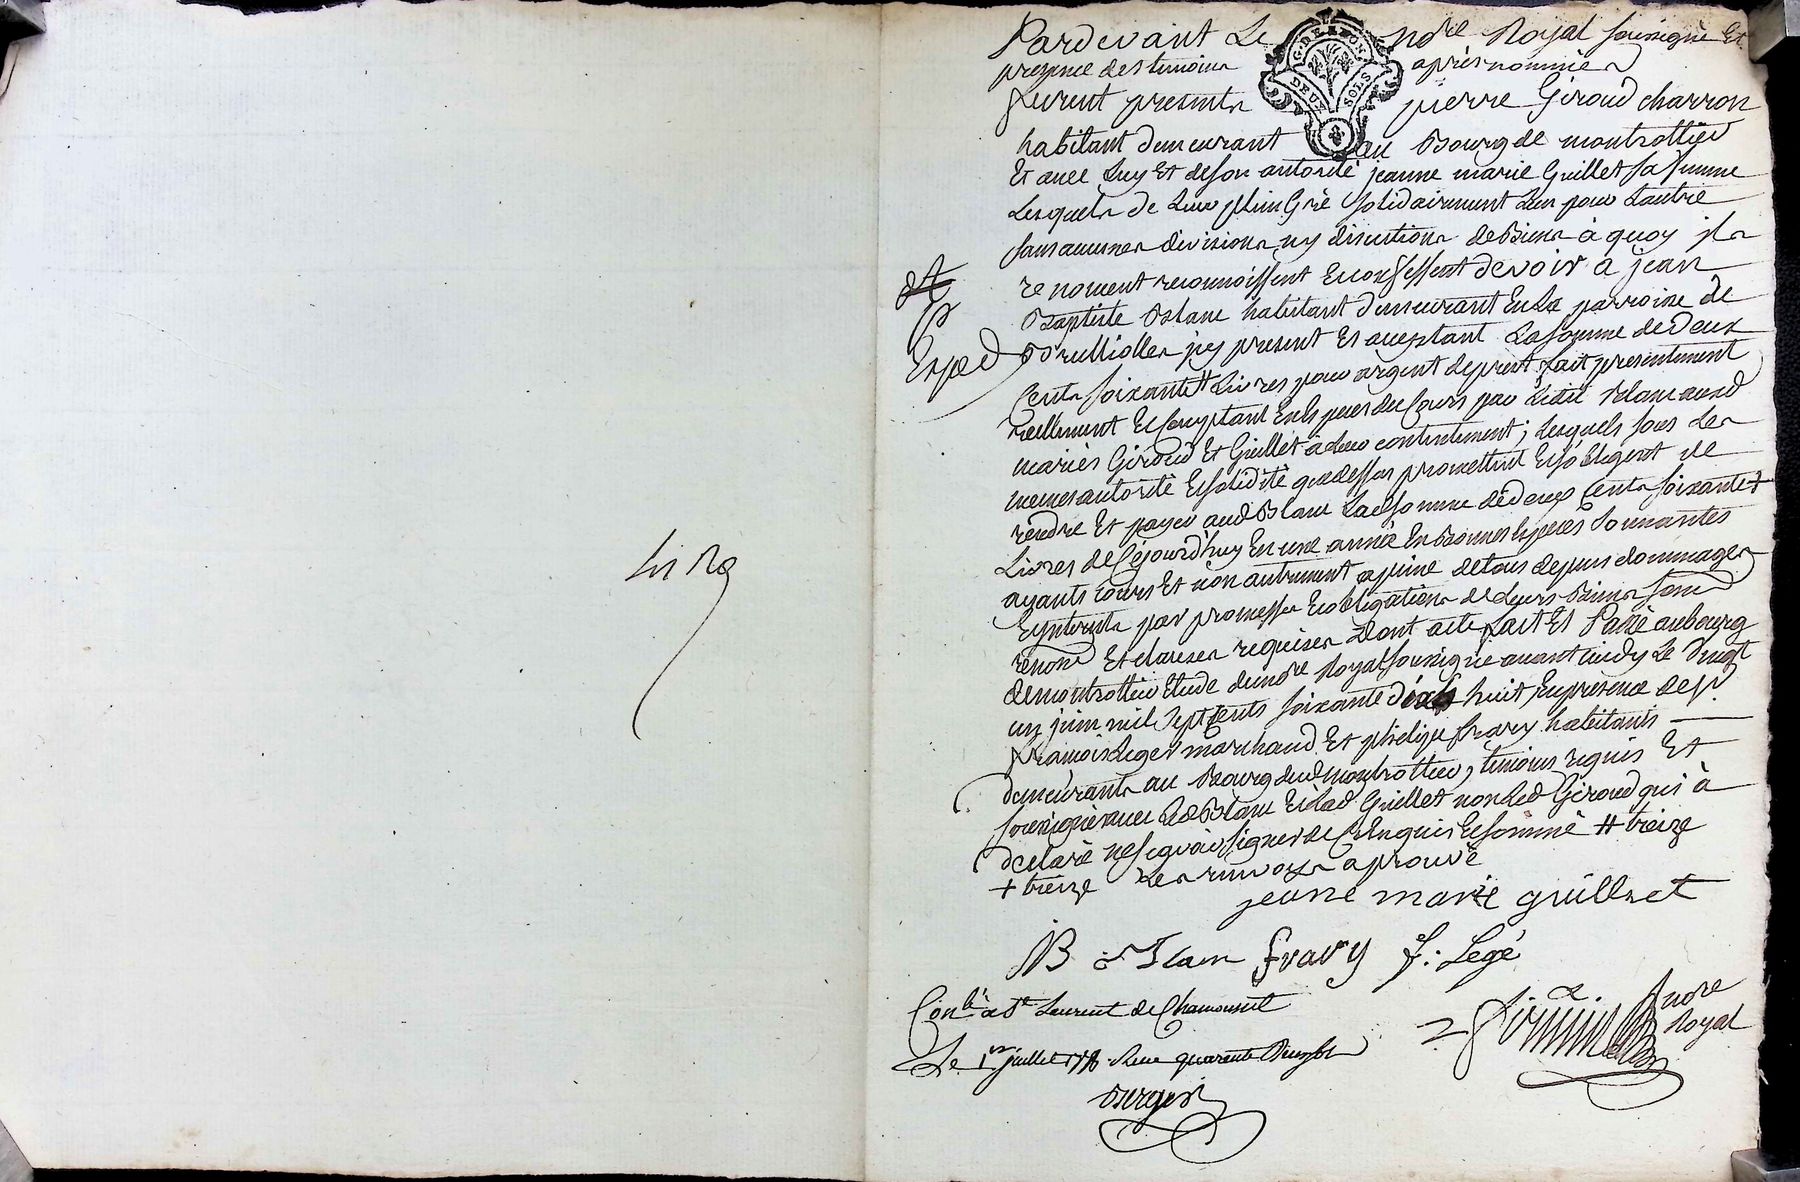 Pardevant Le no.re Royal soussigné Et
presence des temoins après nommés
G. DE LYON
DEUX SOLS
furent presents pierre Giroud charron
habitant demeurant au Bourg de montrottier
Et avec Luy Et de son autorité jeanne marie Guillet sa femme
Lesquels de Leur plein Gré solidairement L'un pour L'autre
sans aucunes divisions ny discutions de Biens à quoy ils
renoncent reconnoissent Et confessent devoir à jean
Baptiste Blanc habitant demeurant En La parroisse de
Brullioller icy present Et acceptant La somme de Deux
Exped
Cents soixante # Livres pour argent de prest fait presentement
reellement Et Comptant En Especes du Cours par Ledit Blanc auxd
mariés Giroud Et Guillet à Leur contentement; Lesquels sous Les
memes autorité Et solidité que dessus promettent Et s'obligent de
rendre Et payer aud Blanc Lad somme de deux Cents soixante +
Livres de Cejourd'huy En une année En Bonnes Especes sonnantes
ayants cours Et non autrement a peine de tous depens dommages
Et interets par promesses Et obligations de Leurs Biens soum
renon Et clauses requises Dont acte fait Et Passé au bourg
de montrottier Etude dud no.re Royal soussigné avant midy Le vingt
un juin mil sept Cents soixante dix huit, En presence de sr
François Leger marchand Et philipe fravy habitants
demeurants au Bourg dud montrottier, temoins requis Et
soussignés avec Led Blanc Et Lad Guillet non Led Giroud qui à
declaré ne sçavoir signer de Ce Enquis Et sommé # treize
+ treize Les renvoys aprouvé
jeane marie guillet
JB Blanc fravy f: Legé
Con.lé à St Laurent de Chamousset
Le 1er juillet 1778 Reçu quarante
no.re
Royal